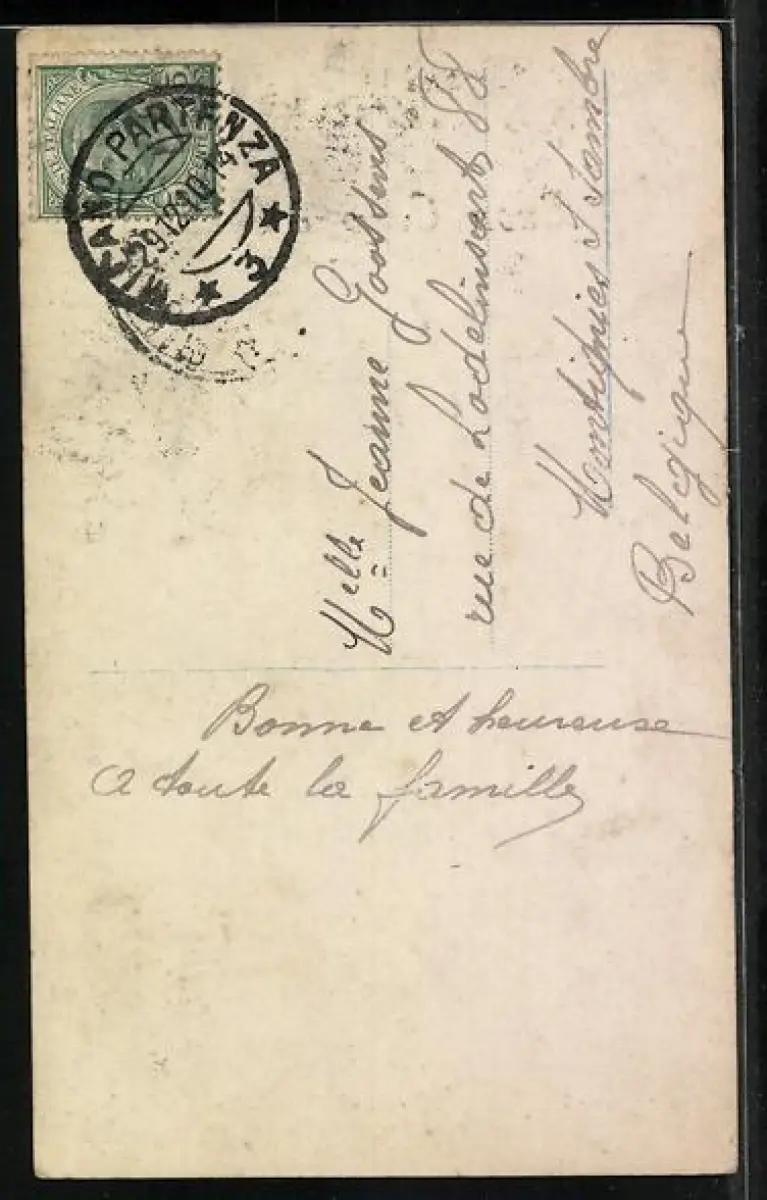 MILANO PARTENZA
29.12.10.14
3
Melle Jeanne Goossens
rue de Lodelinsart 88
Montignies S Sambre
Belgique
Bonne et heureuse
a toute la famille